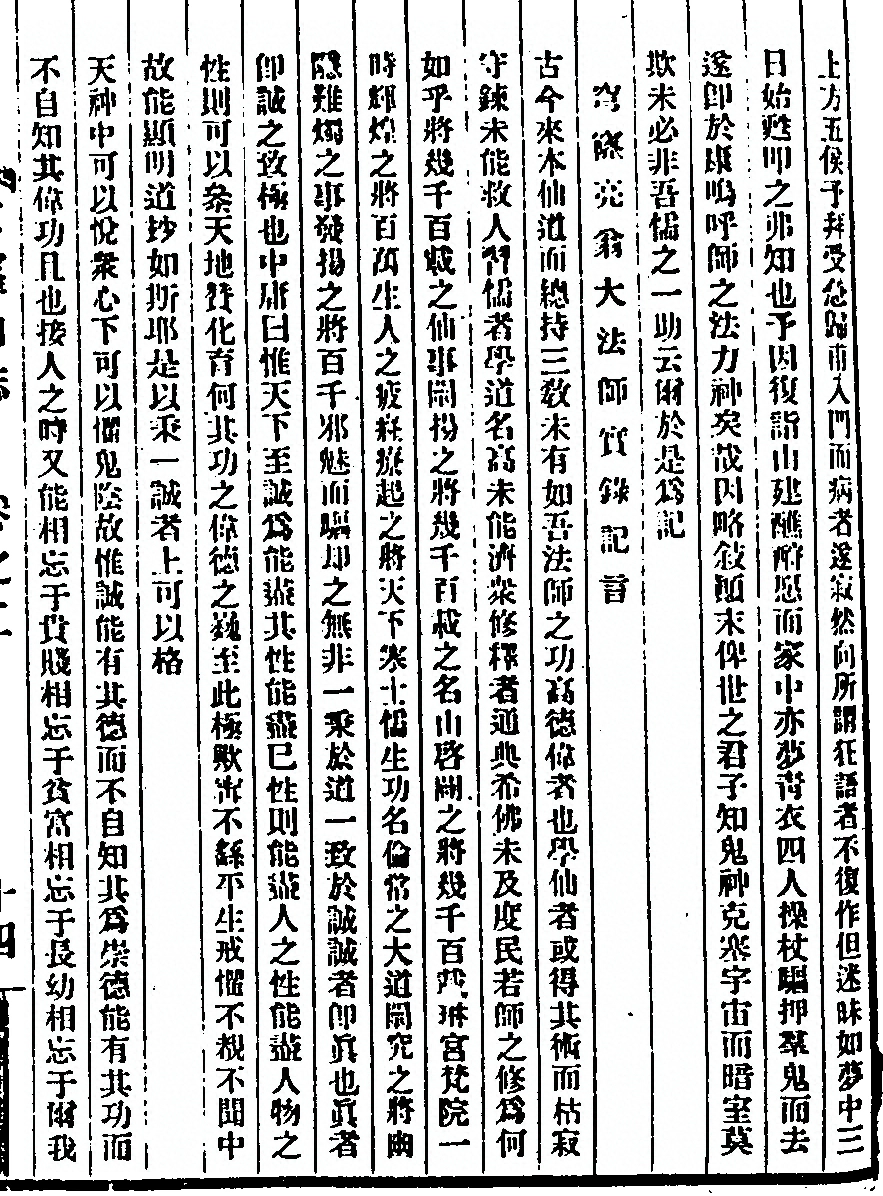 上方五侯予拜受急歸甫入門而病者遂寂然向所謂狂語者不復作但迷昧如夢中三
日始甦叩之弗知也予因復詣山建醮酧愿而家中亦夢青衣四人操杖驅押羣鬼而去
遂卽於康嗚呼師之法力神矣哉因略敍顚末俾世之君子知鬼神充塞宇宙而暗室莫
欺未必非吾儒之一助云爾於是爲記
亮翁大法師實錄記言
古今來本仙道而總持三敎未有如吾法師之功高德偉者也學仙者或得其術而枯寂
守鍊未能救人習儒者學道名高未能濟衆修釋者通典希佛未及度民若師之修爲何
如乎將幾千百載之仙事闡揚之將幾千百載之名山啓闢之將幾千百載琳宮梵院一
時輝煌之將百萬生人之疲癃療起之將天下寒士儒生功名倫常之大道闡究之將幽
隱難燭之事發揚之將百千邪魅而驅却之無非一秉於道一致於誠誠者卽眞也眞者
卽誠之致極也中庸曰惟天下至誠爲能盡其性能盡己性則能盡人之性能盡人物之
性則可以叅天地贊化育何其功之偉德之巍至此極歟甯不繇平生戒懼不覩不聞中
故能顯明道抄如斯耶是以秉一誠者上可以格
天神中可以悅衆心下可以懼鬼陰故惟誠能有其德而不自知其爲崇德能有其功而
不自知其偉功且也接人之時又能相忘于貴賤相忘于貧富相忘于長幼相忘于爾我
卷之二
十四